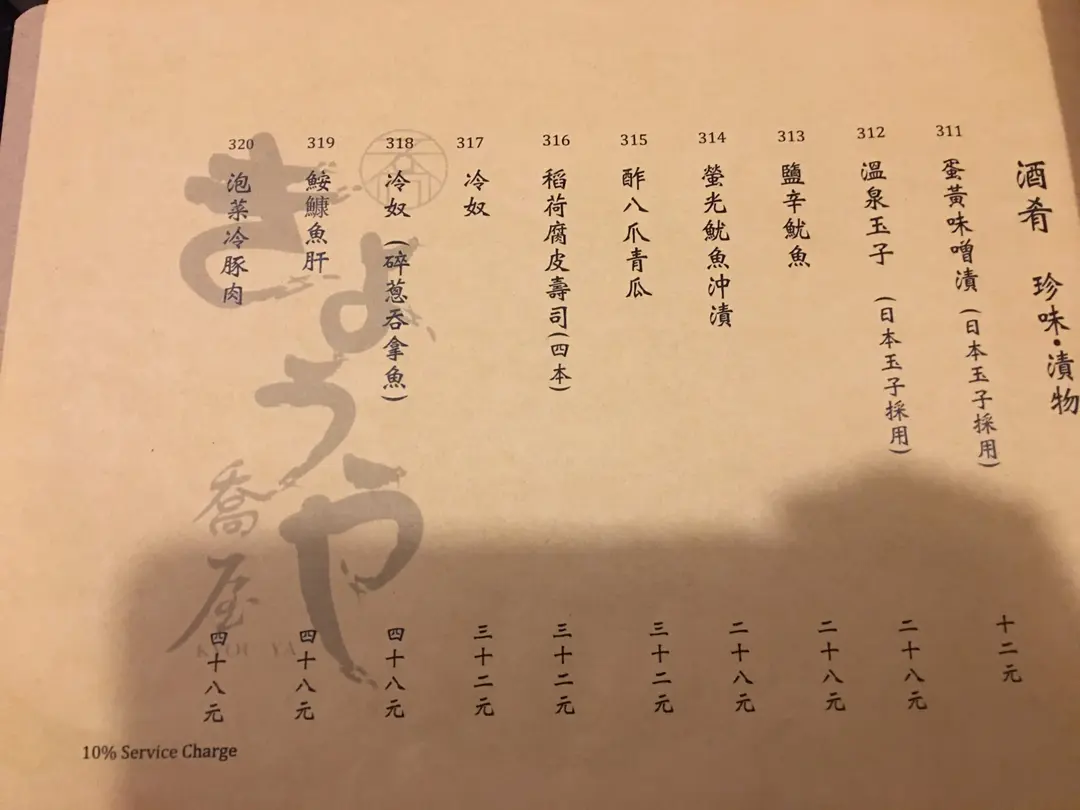 酒肴 珍味•漬物
311
蛋黃味噌漬(日本玉子採用)
十二元
312
溫泉玉子 (日本玉子採用)
二十八元
313
鹽辛魷魚
二十八元
314
螢光魷魚沖漬
二十八元
315
酢八爪青瓜
三十二元
316
稻荷腐皮壽司(四本)
三十二元
317
冷奴
三十二元
318
冷奴 (碎蔥吞拿魚)
四十八元
319
鮟鱇魚肝
四十八元
320
泡菜冷豚肉
四十八元
きょうや
喬屋
KYOU YA
10% Service Charge